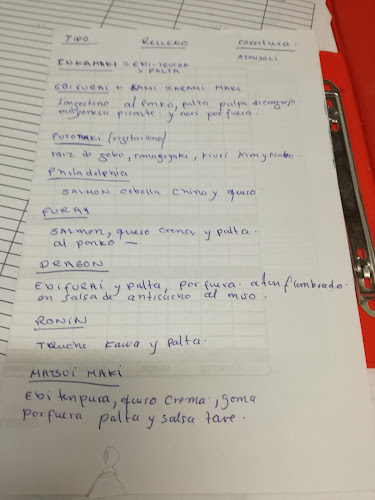 TIPO RELLENO COBERTURA
INKAMAKI = EBI-TRUCHA AJONJOLI
Y PALTA
EBIFURAI + KANI KARAMI MAKI
langostino al panko, palta pulpa de cangrejo
mayonesa picante y nori por fuera.
FUTOMAKI (vegetariano)
raiz de gobo, tamagoyaki, kiuri kim y nabo.
Philadelphia
SALMON cebolla china y queso
FURAY
SALMON, queso crema y palta.
al panko —
DRAGON
EBIFURAI y palta, por fuera atun flambeado
en salsa de anticucho al miso.
RONIN
Trucha Kawa y palta.
MATSUI MAKI
Ebi tenpura, queso crema, goma
por fuera palta y salsa tare.